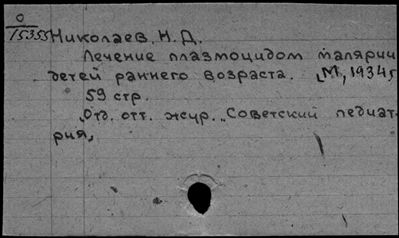 О
15355 Николаев, Н. Д.
Лечение плазмоцидом малярии
детей раннего возраста. [М, 1934,
59 стр.
Отд. отт. жур. „Советский педиат-
рия,